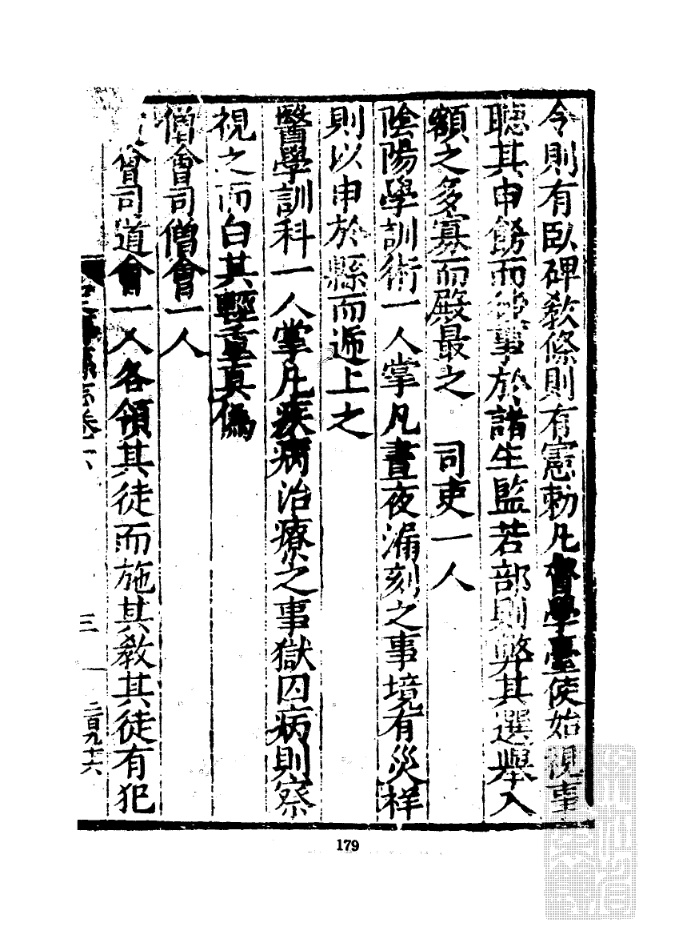 令則有臥碑教條則有憲勅凡督學臺使始視事
聽其申飭而事於諸生監若部則弊其選舉入
額之多寡而殿最之　司吏一人
陰陽學訓術一人掌凡晝夜漏刻之事境有災祥
則以申於縣而遞上之
醫學訓科一人掌凡疾病治療之事獄囚病則察
視之而白其輕重真偽
僧會司僧會一人
會司道會一人各領其徒而施其教其徒有犯
志卷六
三
179